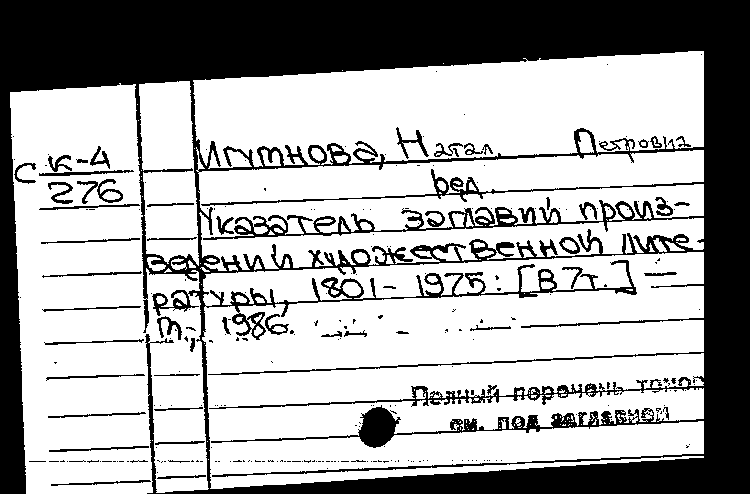 С К-4
276
Игумнова, Натал. Петровна
ред.
Указатель заглавий произ-
ведений художественной лите-
ратуры, 1801-1975: [В 7т.] —
М., 1986.
Полный перечень томов
см. под заглавием